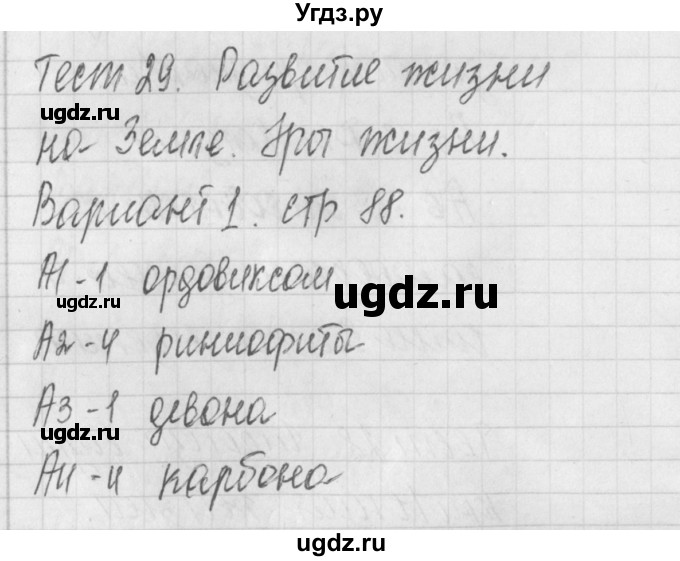 Угдз.ру
Тест 29. Развитие жизни
ugdz.ru
на Земле. Эры жизни.
Вариант 1. стр 88.
ugdz.ru
А1-1 ордовиксом
ugdz.ru
А2-4 риниофиты
А3-1 девона
ugdz.ru
А4-4 карбона
ugdz.ru
ugdz.ru